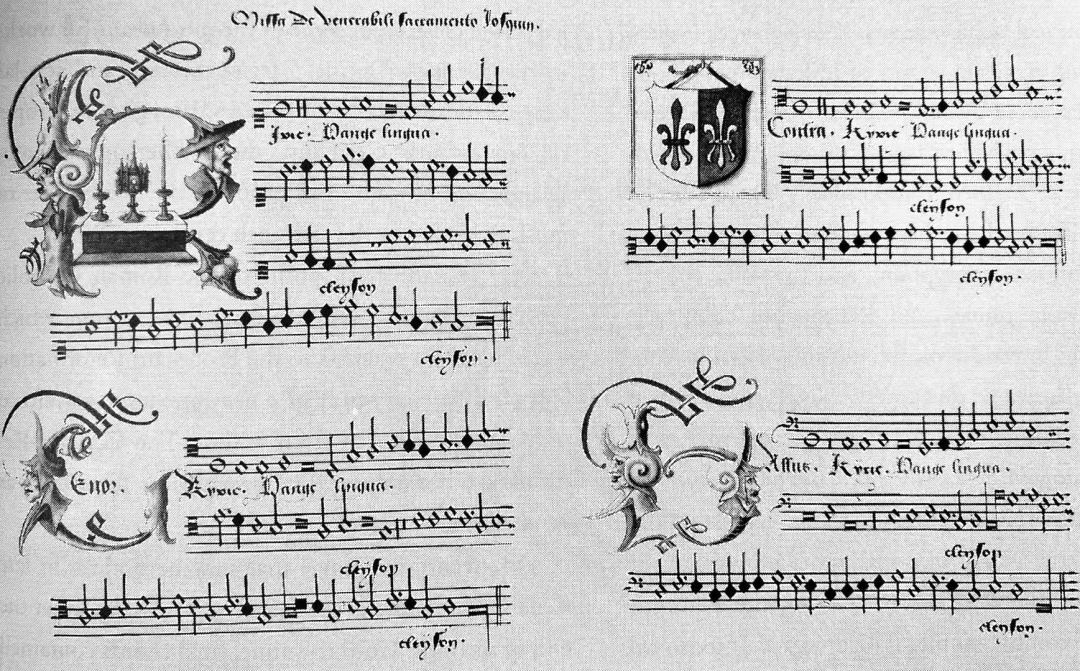 Missa De venerabili sacramento Josquin
Kyrie. Pange lingua.
eleyson
eleyson.
Contra. Kyrie Pange lingua.
eleyson
eleyson.
Tenor. Kyrie. Pange lingua.
eleyson
eleyson.
Bassus. Kyrie. Pange lingua.
eleyson
eleyson.